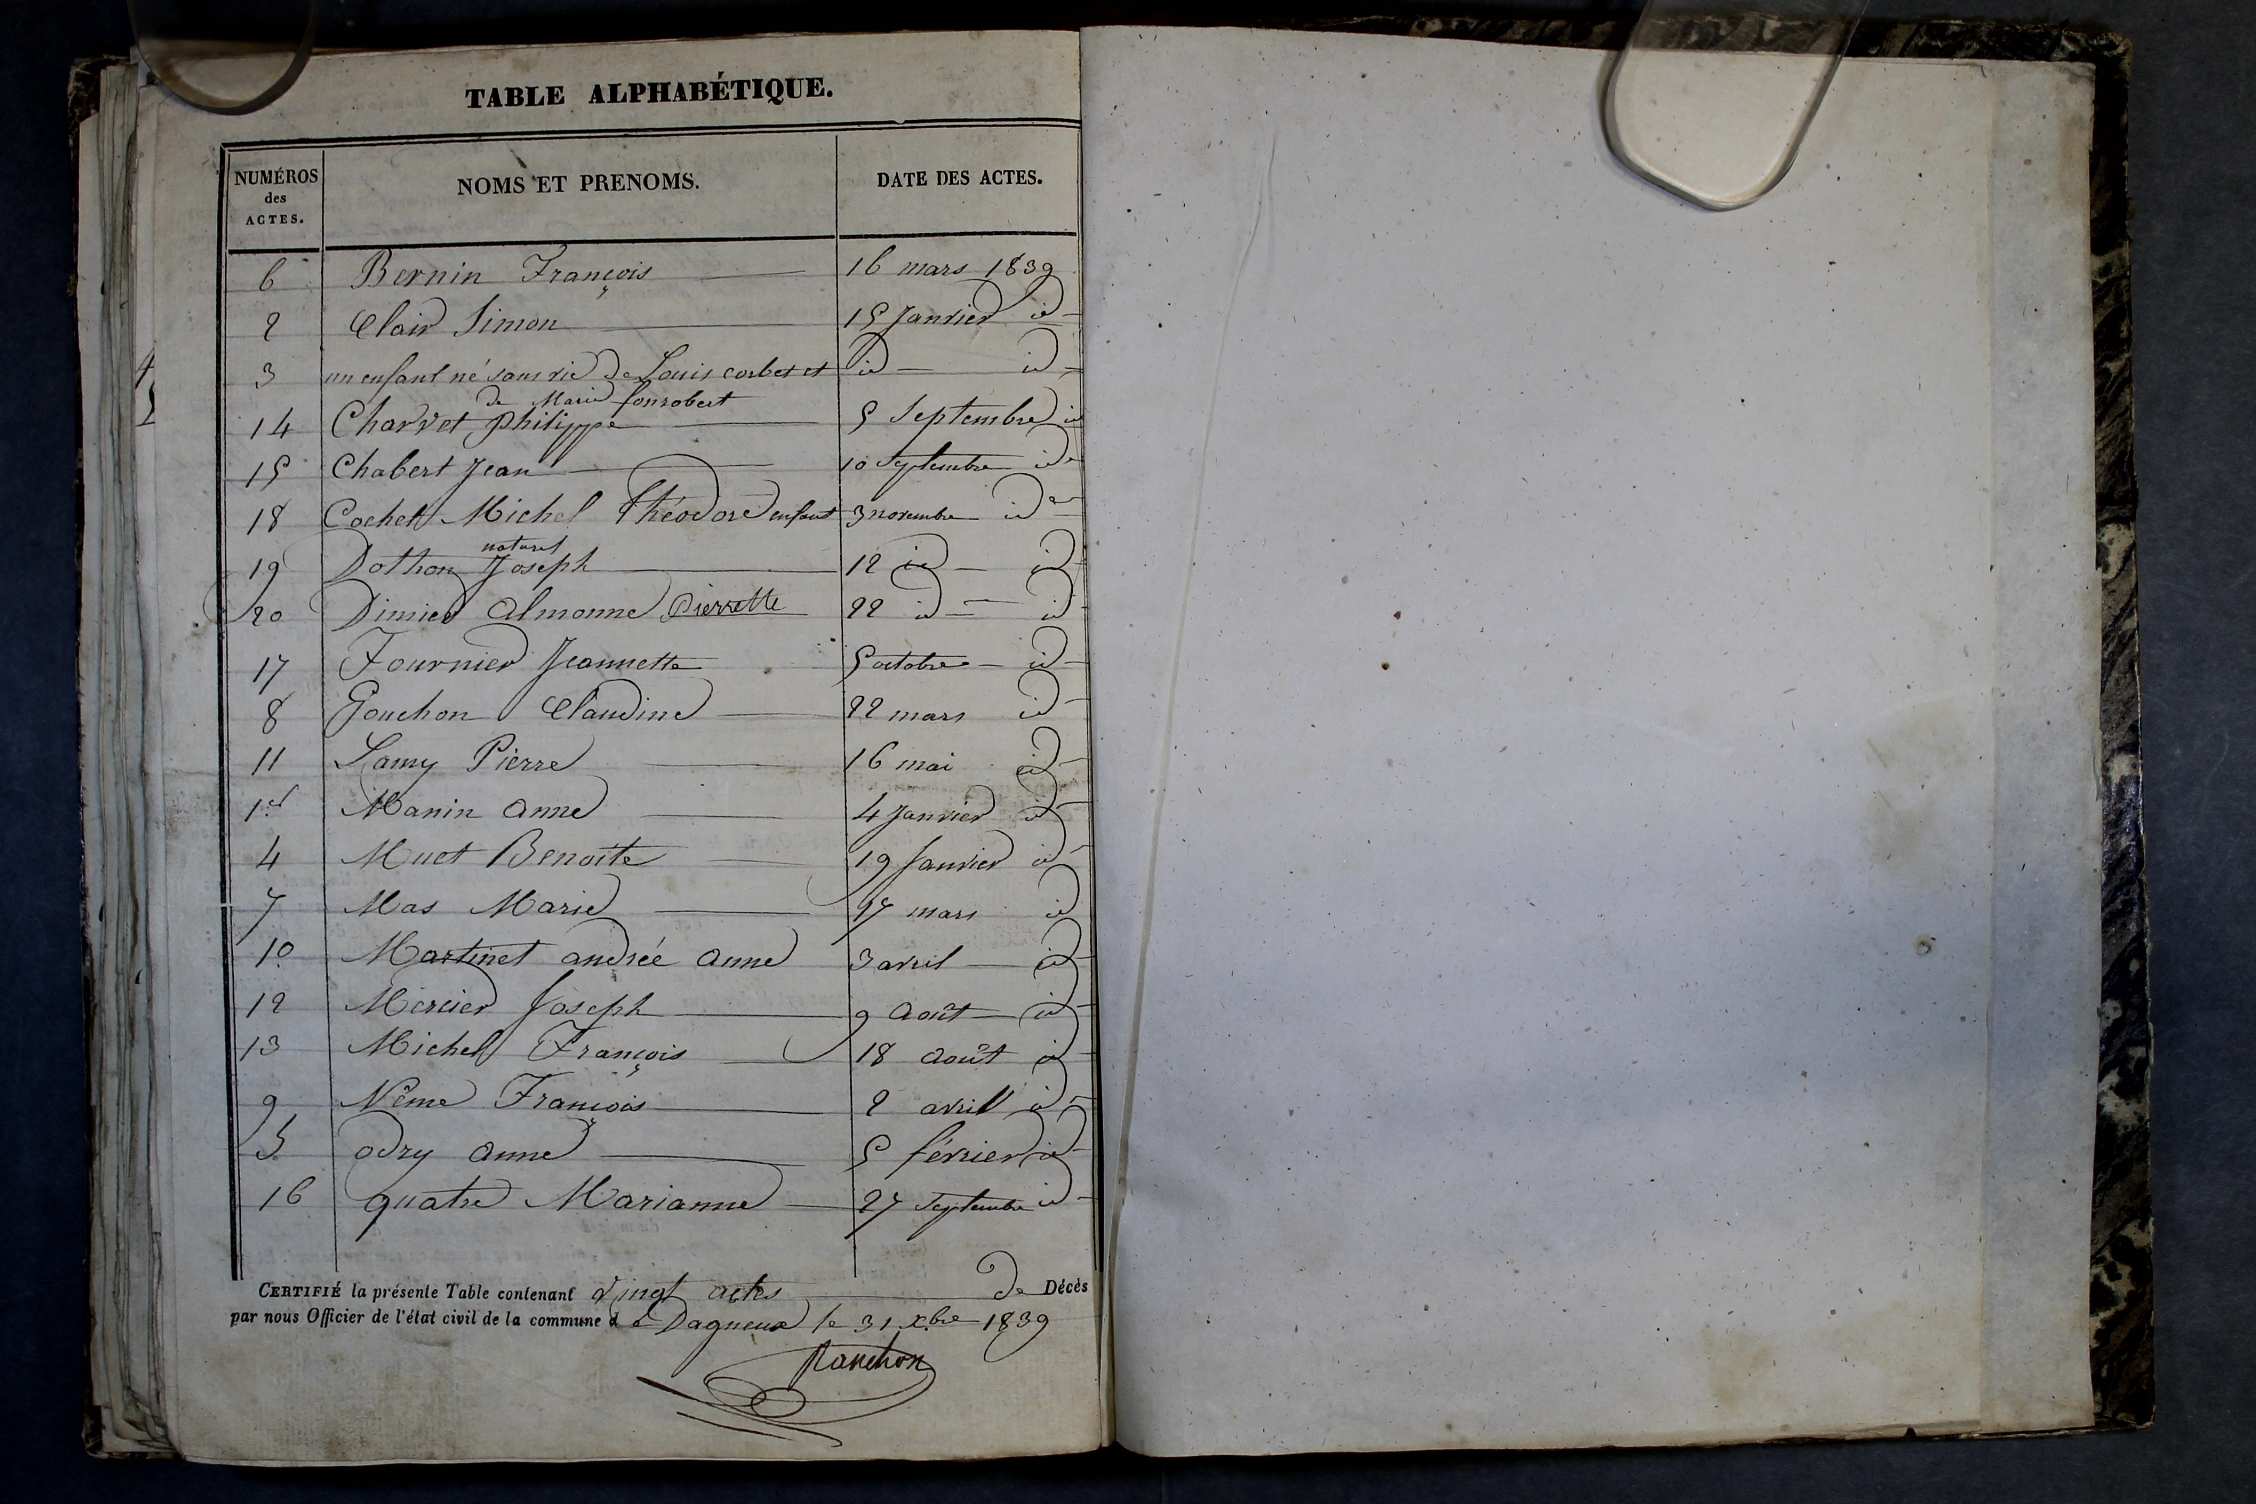 TABLE ALPHABÉTIQUE.
NUMÉROS des ACTES. NOMS ET PRENOMS. DATE DES ACTES.
6 Bernin François 16 mars 1839
2 Clair Simon 15 Janvier id
3 un enfant né sans vie de Louis corbet et id id
de Marie fonrobert
14 Charvet philippe 5 Septembre id
15 Chabert Jean 10 Septembre id
18 Cochet Michel Théodore enfant 3 novembre id
naturel
19 Dothon Joseph 12 id id
20 Dimier Almonne Pierrette 22 id id
17 Fournier Jeannette 5 octobre id
8 Gouchon Claudine 22 mars id
11 Lamy Pierre 16 mai id
1er Manin anne 4 Janvier id
4 Muet Benoite 19 Janvier id
7 Mas Marie 17 mars id
10 Martinet andrée anne 3 avril id
12 Mercier Joseph 9 Août id
13 Michel François 18 Août id
9 Nême François 2 avril id
5 odry anne 5 février id
16 quatre Marianne 27 Septembre id
CERTIFIÉ la présente Table contenant vingt actes de Décès
par nous Officier de l'état civil de la commune de Dagneux le 31 xbre 1839
Planchon